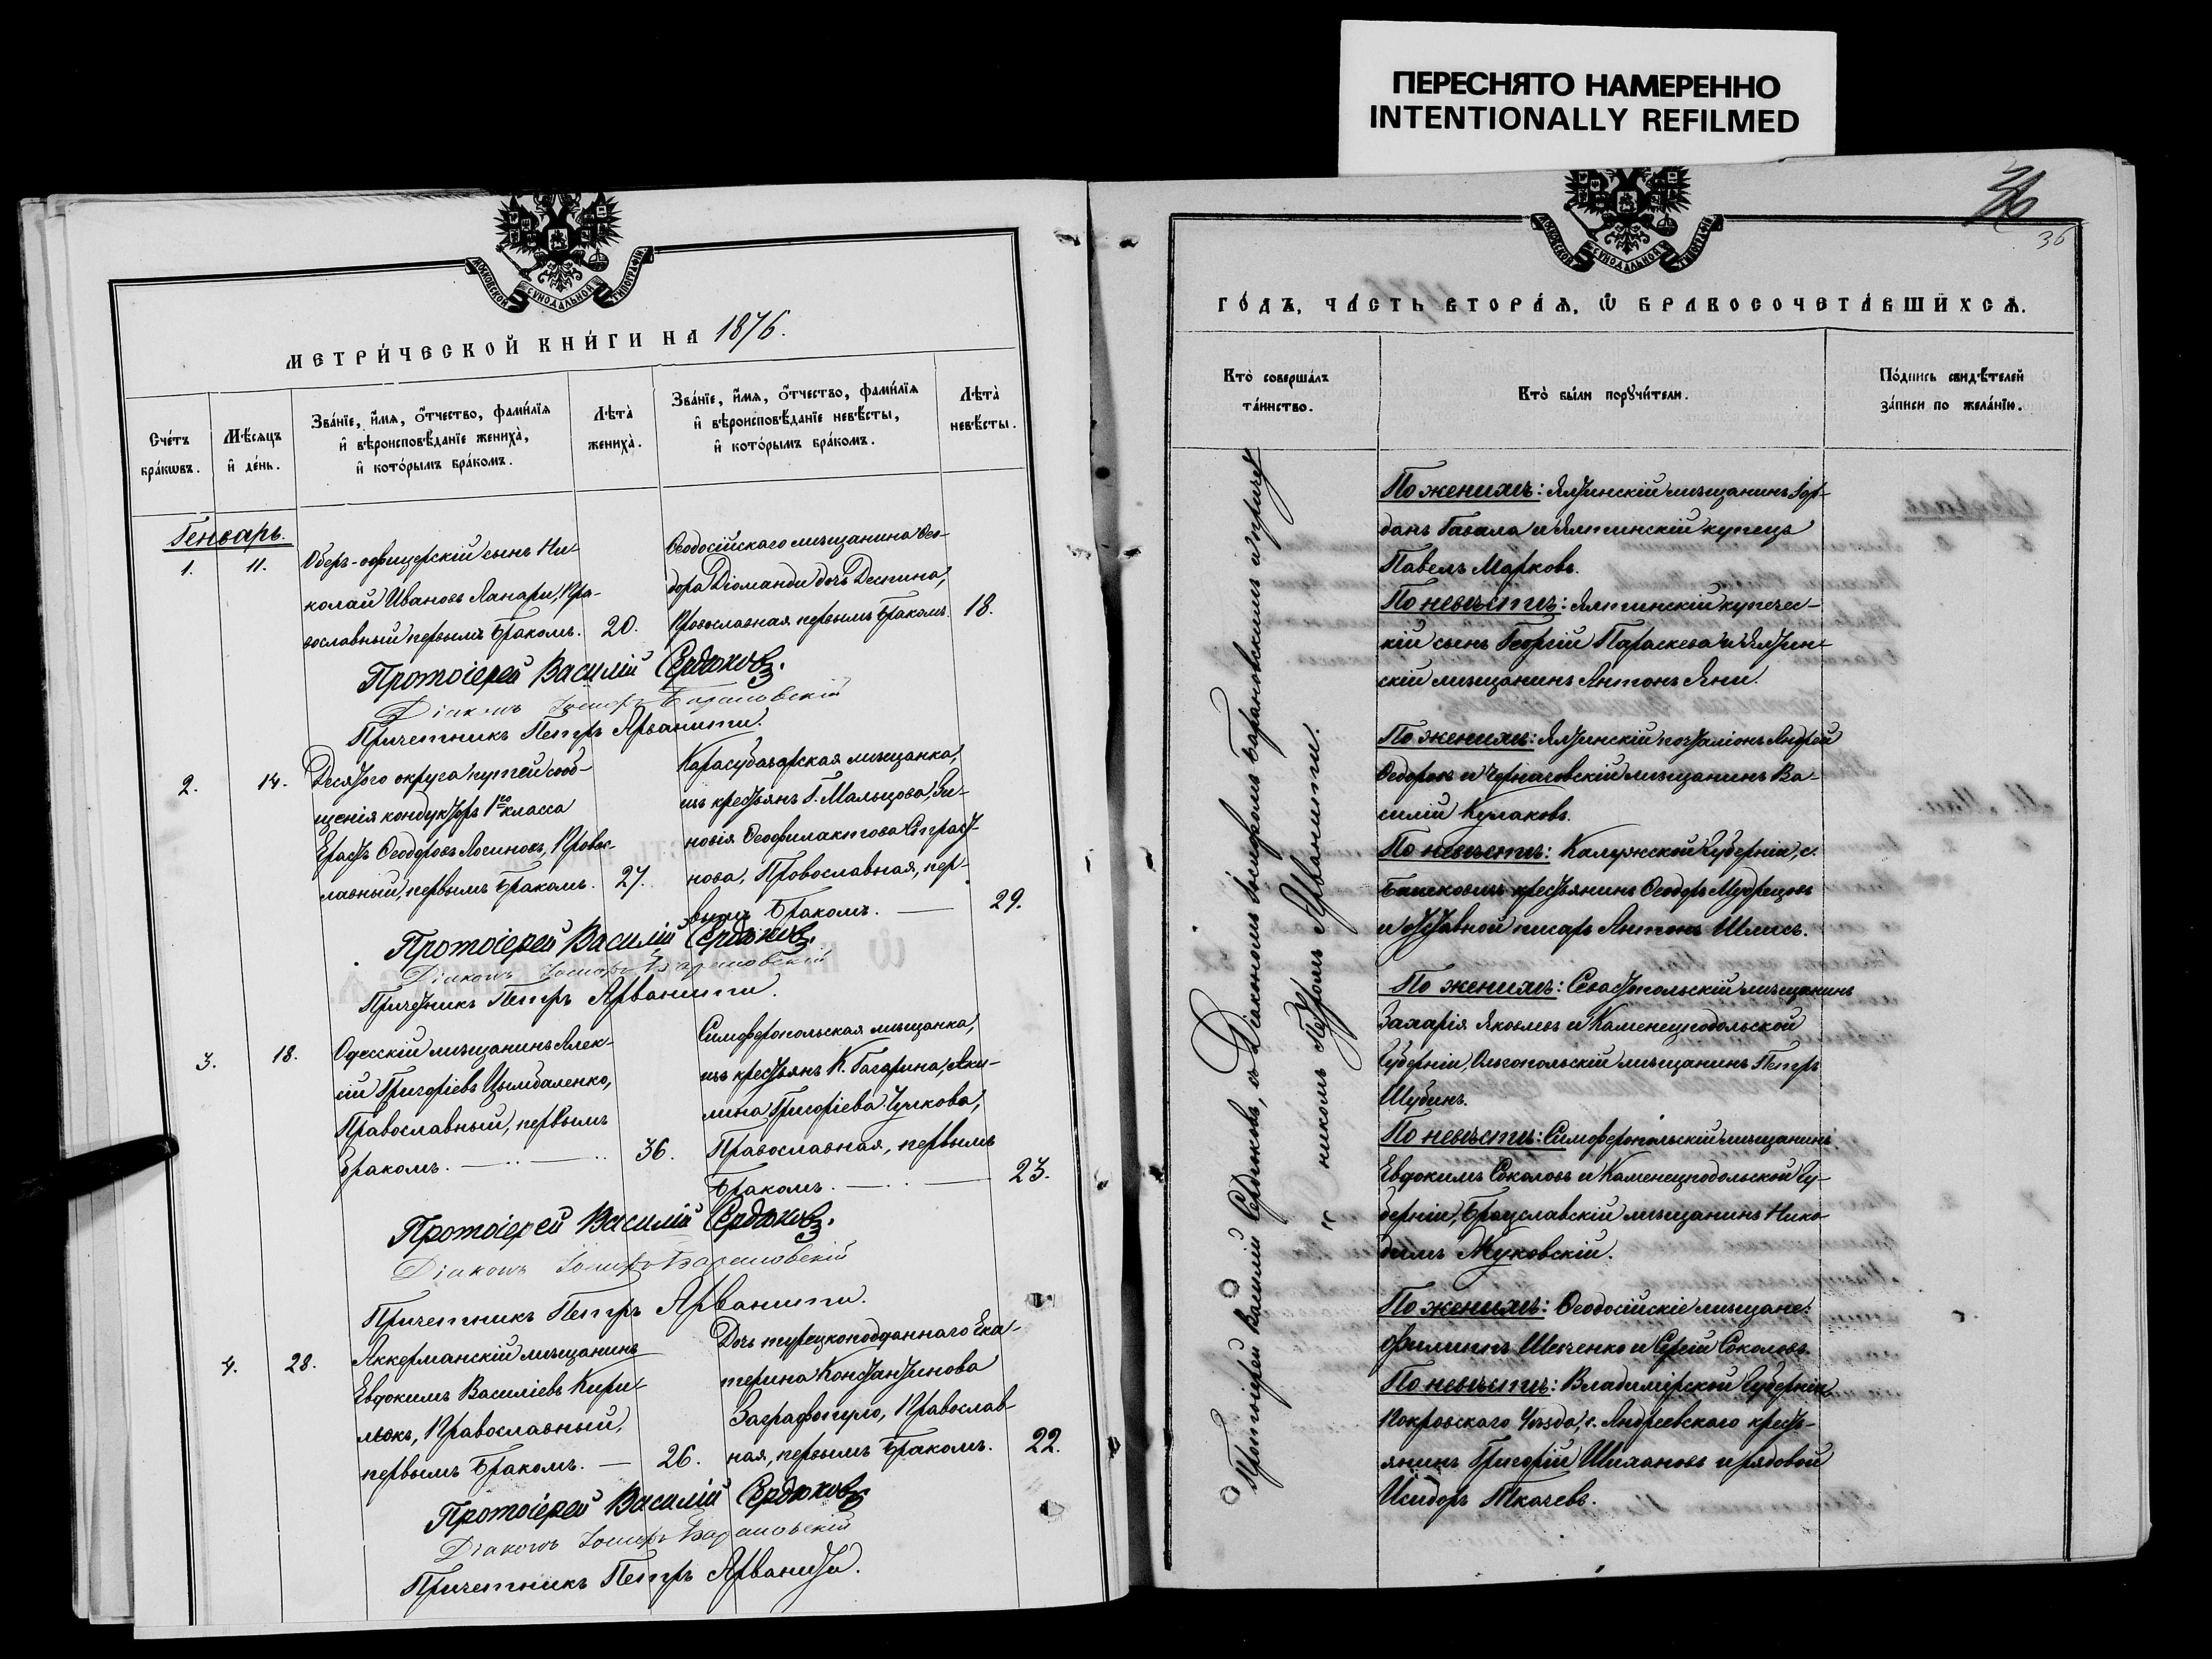 ПЕРЕСНЯТО НАМЕРЕННО
INTENTIONALLY REFILMED
МОСКОВСКОЙ СУНОДАЛЬНОЙ ТИПОГРАФІИ
МЕТРИ́ЧЕСКОЙ КНИ́ГИ НА 1876.
Сче́тъ бра́кωвъ.
Мѣ́сяцъ и҆ де́нь.
Зва́нїе, и҆́мѧ, ѻ҆́тчество, фами́лїѧ и҆ вѣроисповѣ́данїе жениха̀, и҆ кото́рымъ бра́комъ.
Лѣта̀ жениха̀.
Зва́нїе, и҆́мѧ, ѻ҆́тчество, фами́лїѧ и҆ вѣроисповѣ́данїе невѣ́сты, и҆ кото́рымъ бра́комъ.
Лѣта̀ невѣ́сты.
Генварь.
1.
11.
Оберъ-офицерскій сынъ Ни-
колай Ивановъ Ланари, Пра-
вославный первымъ бракомъ.
20.
Ѳеодосійскаго мѣщанина Ѳео-
дора Діоманди дочь Деспина,
Православная первымъ бракомъ.
18.
Протоіерей Василій Сердюковъ.
Діаконъ Іосифъ Барановскій
Причетникъ Петръ Арванити.
2.
14.
Десятого округа путей сооб-
щенія кондукторъ 1го класса
Ерастъ Ѳеодоровъ Логиновъ, Правос-
лавный, первымъ бракомъ.
27.
Карасубазарская мѣщанка,
изъ крестьянъ Г. Мальцова, Зи-
новія Ѳеофилактова
нова, Православная, пер-
вымъ бракомъ.
29.
Протоіерей Василій Сердюковъ.
Діаконъ Іосифъ Барановскій
Причетникъ Петръ Арванити.
3.
18.
Одесскій мѣщанинъ Алек-
сій Григоріевъ Цымбаленко,
Православный, первымъ
бракомъ.
36.
Симферопольская мѣщанка,
изъ крестьянъ К. Гагарина, Аки-
лина Григоріева Чулкова,
Православная, первымъ
бракомъ.
23.
Протоіерей Василій Сердюковъ.
Діаконъ Іосифъ Барановскій
Причетникъ Петръ Арванити.
4.
28.
Аккерманскій мѣщанинъ
Евдокимъ Василіевъ Кири-
люкъ, Православный,
первымъ бракомъ.
26.
Дочь турецкоподданнаго Ека-
терина Константинова
Заграфопуло, Православ-
ная, первымъ бракомъ.
22.
Протоіерей Василій Сердюковъ.
Діаконъ Іосифъ Барановскій
Причетникъ Петръ Арванити.
36
МОСКОВСКОЙ СУНОДАЛЬНОЙ ТИПОГРАФІИ
ГО́ДЪ, ЧА́СТЬ ВТОРА́Ѧ, Ѽ БРАКОСОЧЕТА́ВШИХСѦ.
Кто̀ соверша́лъ та́инство.
Кто̀ были порꙋчи́тели.
По́дпись свидѣ́телей за́писи по жела́нїю.
Протоіерей Василій Сердюковъ, съ Діакономъ Іосифомъ Барановскимъ и причет-
никомъ Петромъ Арванити.
По женихѣ: Ялтинскій мѣщанинъ Іор-
данъ Гавала и Ялтинскій купецъ
Павелъ Марковъ.
По невѣстѣ: Ялтинскій купечес-
кій сынъ Георгій Параскева и Ялтин-
скій мѣщанинъ Антонъ Яни.
По женихѣ: Ялтинскій почталіонъ Андрей
Ѳедоровъ и Черниговскій мѣщанинъ Ва-
силій Кулаковъ.
По невѣстѣ: Калужской Губерніи, с.
крестьянинъ Ѳеодоръ Мудрецовъ
и писарь Антонъ Шмисъ.
По женихѣ: Севастопольскій мѣщанинъ
Захарія Яковлевъ и Каменецподольской
Губерніи, Ольгопольскій мѣщанинъ Петръ
Шубинъ.
По невѣстѣ: Симферопольскій мѣщанинъ
Евдокимъ Соколовъ и Каменецподольской Гу-
берніи, Брацславскій мѣщанинъ Нико-
димъ Жуковскій.
По женихѣ: Ѳеодосійскіе мѣщане:
Филиппъ Шевченко и Сергій Соколовъ.
По невѣстѣ: Владимірской Губерніи,
Покровскаго Уѣзда, с. Андреевскаго кресть-
янинъ Григорій Шихановъ и рядовой
Исидоръ Ткачевъ.